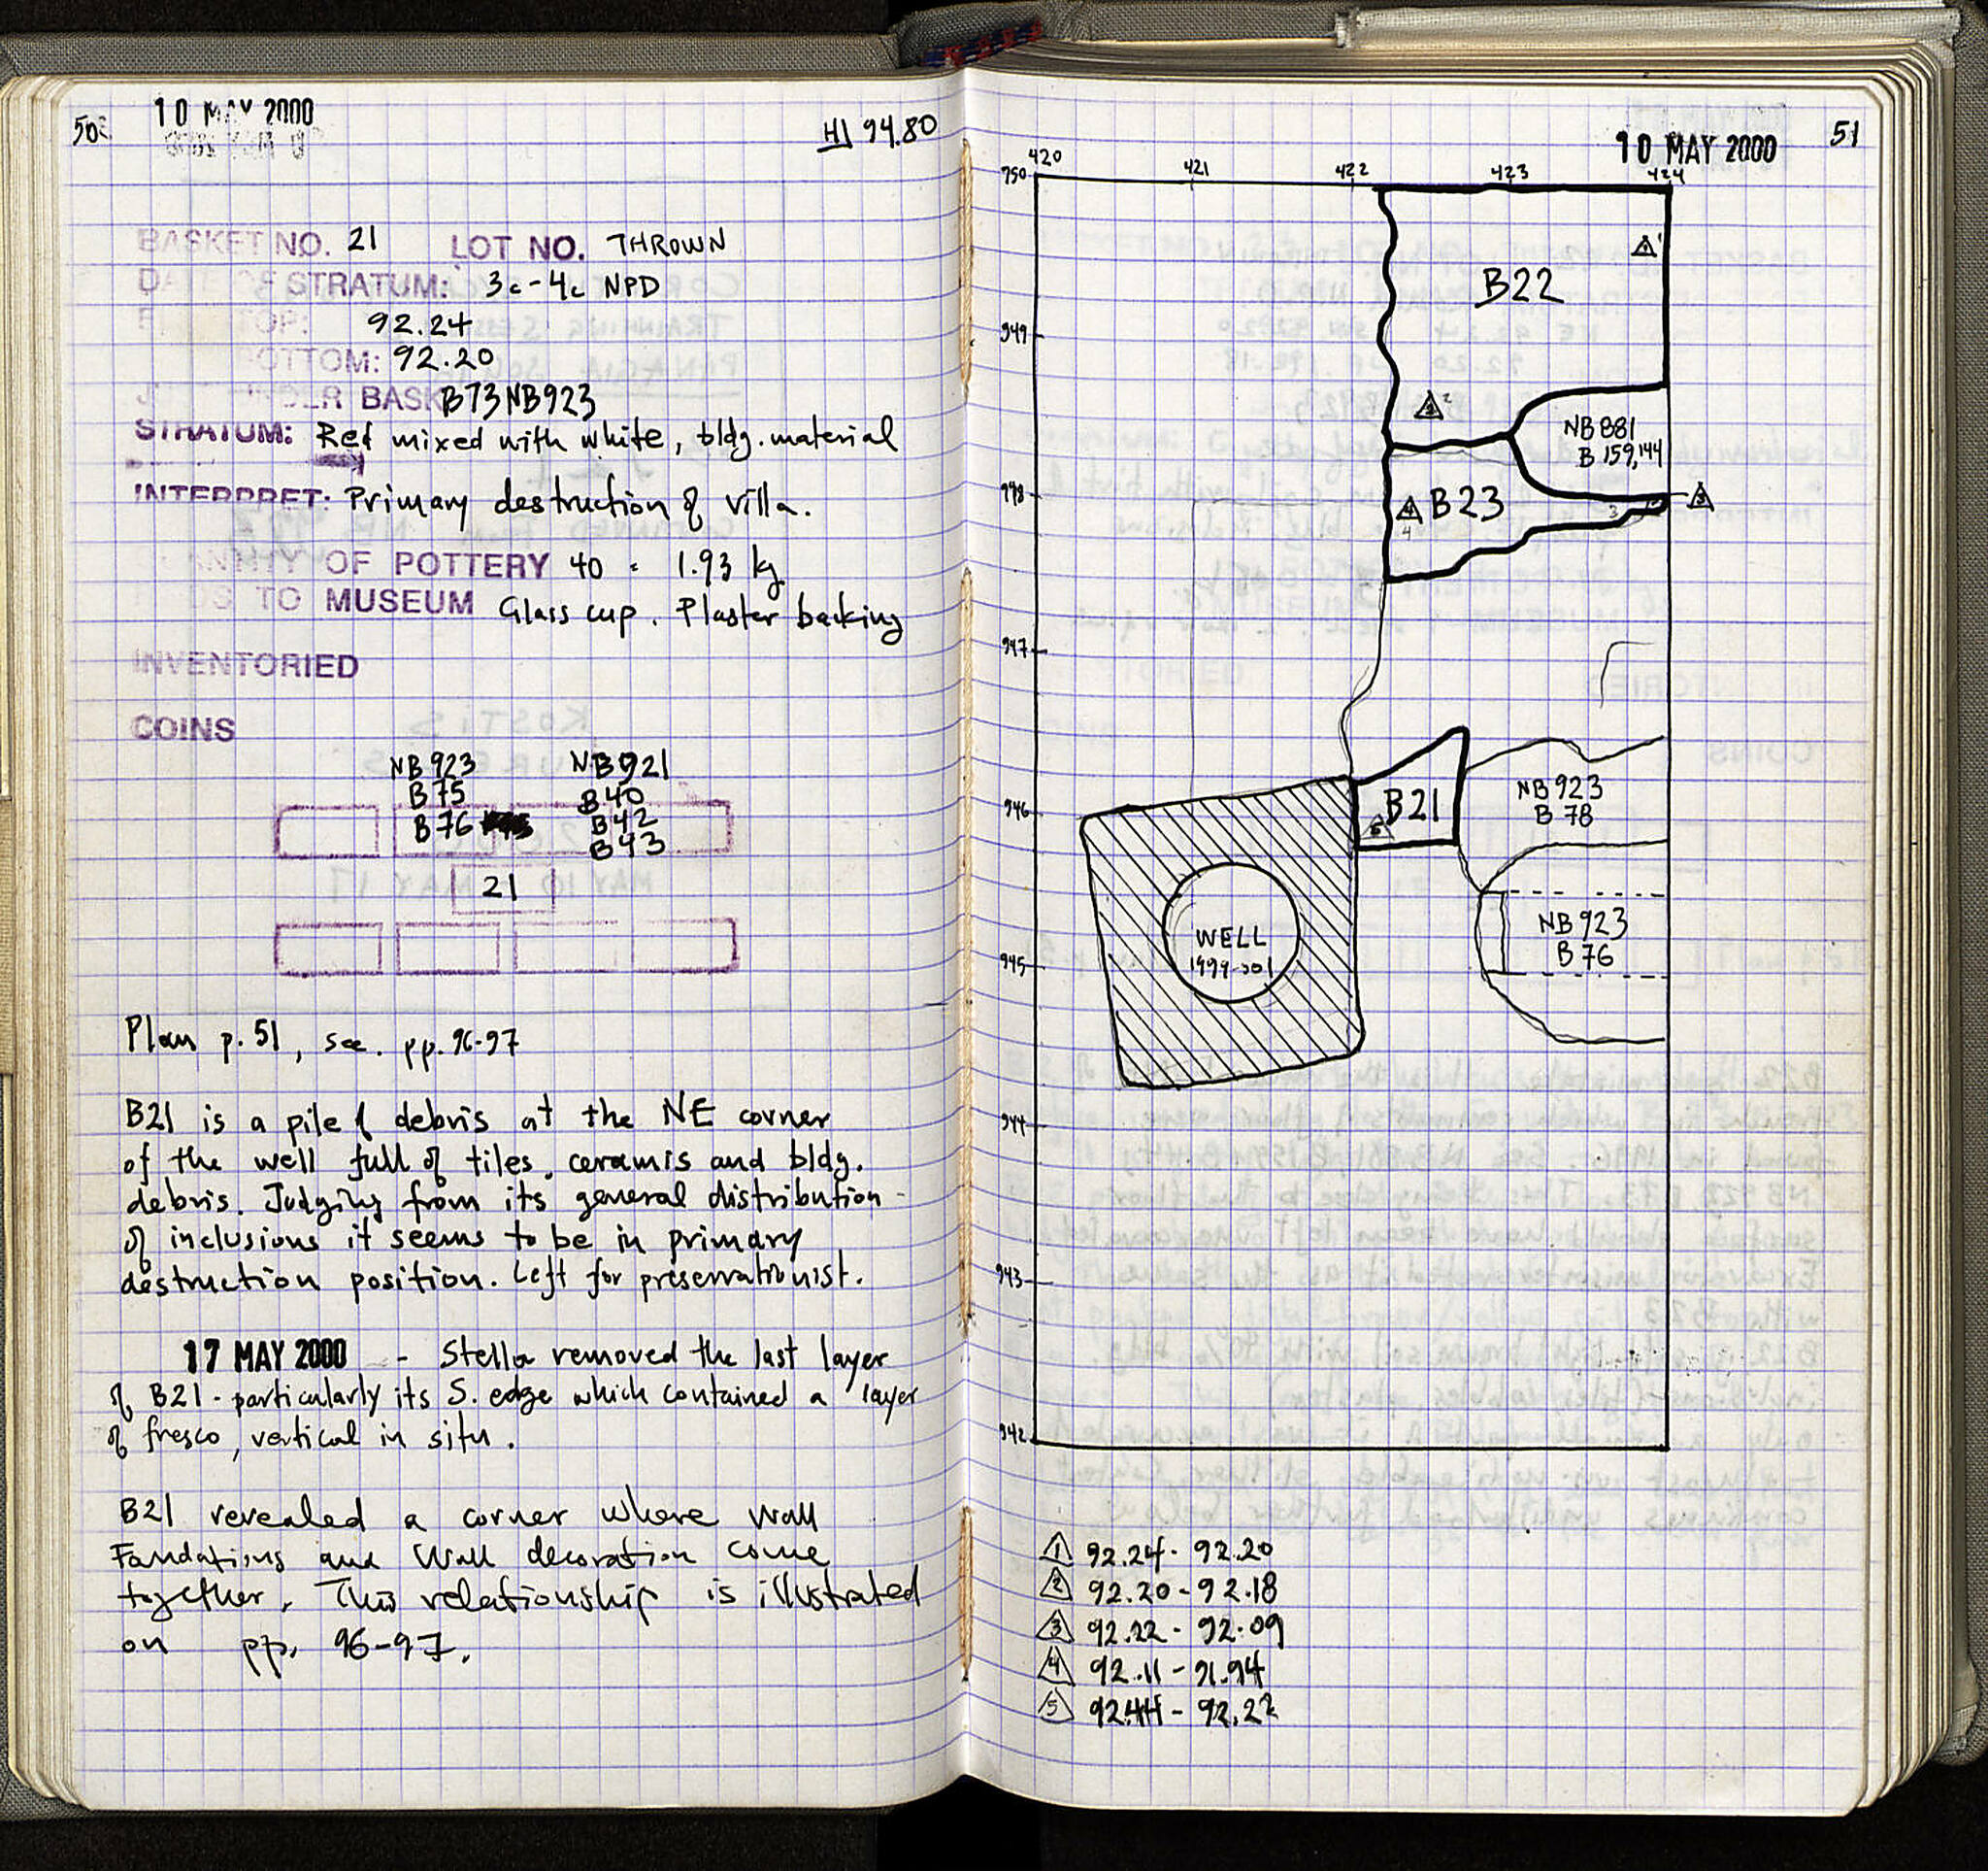 50
10 MAY 2000
HI 94.80
BASKET NO. 21 LOT NO. THROWN
STRATUM: 3c-4c NPD
TOP: 92.24
BOTTOM: 92.20
B73 NB923
STRATUM: Red mixed with white, bldg. material
INTERPRET: Primary destruction of villa.
OF POTTERY 40 = 1.93 kg
TO MUSEUM Glass cup. Plaster backing
INVENTORIED
COINS
NB923 NB921
B75 B40
B76 B42
B43
21
Plan p. 51, see. pp. 96-97
B21 is a pile of debris at the NE corner
of the well full of tiles, ceramis and bldg.
debris. Judging from its general distribution
of inclusions it seems to be in primary
destruction position. Left for preservationist.
17 MAY 2000 - Stella removed the last layer
of B21 - particularly its S. edge which contained a layer
of fresco, vertical in situ.
B21 revealed a corner where wall
Fandations and Wall decoration come
together. This relationship is illustrated
on pp. 96-97.
51
10 MAY 2000
420 421 422 423 424
950
949
948
947
946
945
944
943
942
1
B22
2
NB881
B 159,144
B23
4
3
3
4
B21
5
NB923
B 78
NB923
B 76
WELL
1999-501
1 92.24 - 92.20
2 92.20 - 92.18
3 92.22 - 92.09
4 92.11 - 91.94
5 92.44 - 92.22